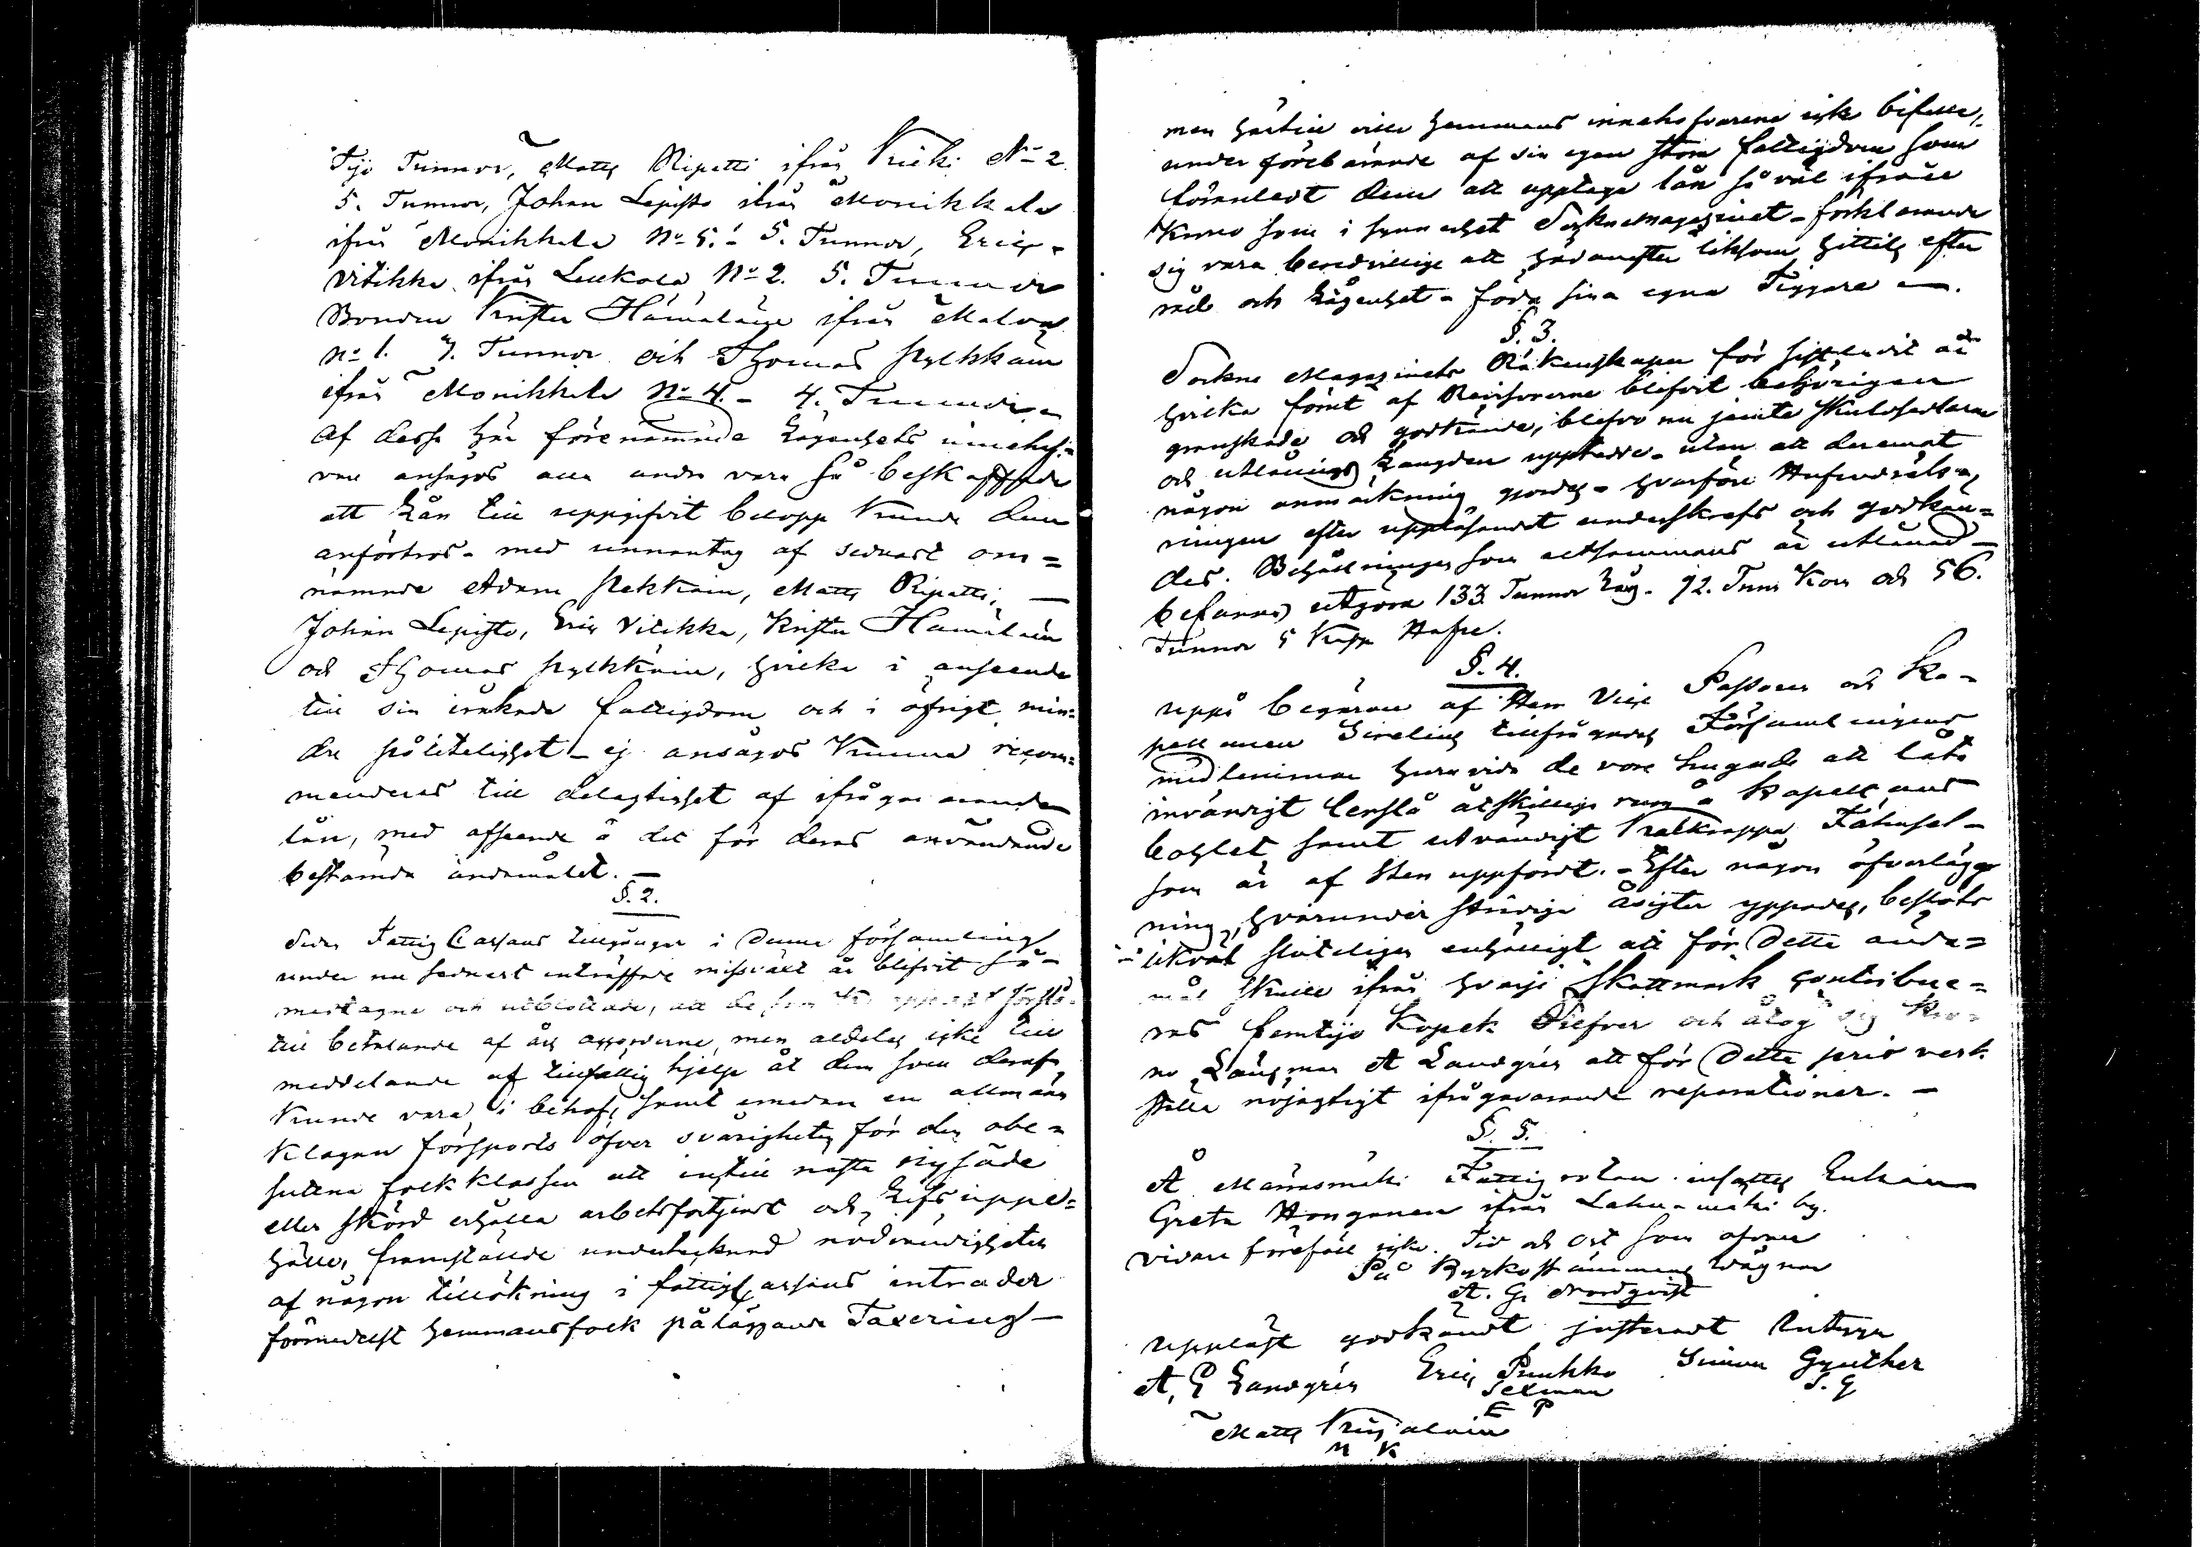 Tijo Tunnor, Matts Ripatti ifrån Kuuki No 2
5. Tunnor, Johan Lepistö ifrån Monikkala
ifrån Monikkala No 5. - 5. Tunnor, Eric
Vitikka ifrån Leukola No 2. 5. Tunnor
Bonden Krister Hämäläin ifrån
No 1. 7. Tunnor och Thomas Pylkkäin
ifrån Monikkala No 4. - 4. Tunnor.
Af dessa här förenämnde Lägenhets innehaf-
vare ansågos alla andra vara så beskaffade
att Lån till uppgifvit belopp kunde dem
anförtros - med unnantag af sednast om=
nämnde Adam Pekkain, Matts Ripatti, —
Johan Lepistö, Eric Vitikka, Krister Hämäläin
och Thomas Pylkkäin, hvilka i anseende
till sin iråkade fattigdom och i öfrigt min=
dre pålitelighet - ej ansågos kunna recom=
menderas till delagtighet af ifrågavarande
lån, med afseende å det för deras användande
bestämda ändamålet. —
§. 2.
Sedan Fattig Cassans tillgångar i denna församling
under nu sednast inträffade missväxt år blifvit så -
medtagne och utblottade, att de
till betalande af års men aldeles icke till
meddelande af tillfällig hjelp åt dem som deraf
kunde vara i behof, samt emedan en allmän
klagan försports öfver svårigheten för den obe=
sutena folkklassen att intill nästa nysäde
eller skörd erhålla arbetsförtjenst och Lifs uppe=
hälle, framställde undertecknad nödvändigheten
af någon tillökning i fattigcassans intrader
förmedelst hemmansfolk påläggande Taxering —
men härtill ville hemmans innehafvarena icke bifalla,
under förebärande af sin egen stora fattigdom som
förenledt dem att upptaga lån så väl ifrån
Krono som i synnerhet Sockne Magazinet - förklarande
sig vara beredvillige att hädanefter liksom hittils efter
råd och Lägenhet - föda sina egna Tiggare —.
§. 3.
Sockne Magazinets Räkenskaper för sistledit år
hvilka förut af Revisorerne blifvit behörigen
granskade och godkände, blefvo nu jemte Skuldsedlarne
och utlånings Längden upptedde - utan att deremot
någon anmärkning gjordes - hvarföre Hufvudräk-
ningen efter uppläsandet underskrefs och godkän=
des. Behållningen som altsammans är utlånad —
befanns utgöra 133 Tunnor Råg. 92. Tunn Korn och 56.
Tunnor 5 Kapp Hafre.
§. 4.
Uppå begäran af Herr Vice Pastorn och Ka-
pellanen Sirelius tillfrågades Församlingens
medlemmar huruvida de vore hugade att låta
invändigt berslå åtskillige rum å Kapellans
bohlet samt utvändigt kalkrappa Fähuset -
som är af Sten uppfördt. - Efter någon öfverlägg
ning, hvarunder stridige åsigter yppades, beslöts
likväl slutligen enhälligt att för detta ända=
mål skulle ifrån hvarje Skattmark contribue=
ras femtijo Kopek Silfver och åtog sig Kro-
no Länsman A Landgrén att för detta pris verk-
ställa nöjagtigt ifrågavarande reparationer. —
§. 5.
Å Männämäki Fattig rotan insattes Enkan
Greta Hongonen ifrån Lahnamäki by.
Vidare förefäll icke. Tid och ort som ofvan
På Kyrkostämmans Vägnar
A. G. Nordqvist
Uppläst godkändt justeradt
A, G Landgrén Eric Puukko Simon Gynther
Sexman S. G
E P
Matts Krigsalain
M K